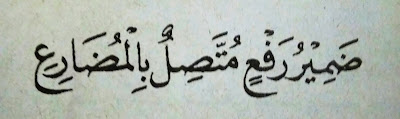 ضَمِيْرُ رَفْعٍ مُتَّصِلٌ بِالْمُضَارِعِ